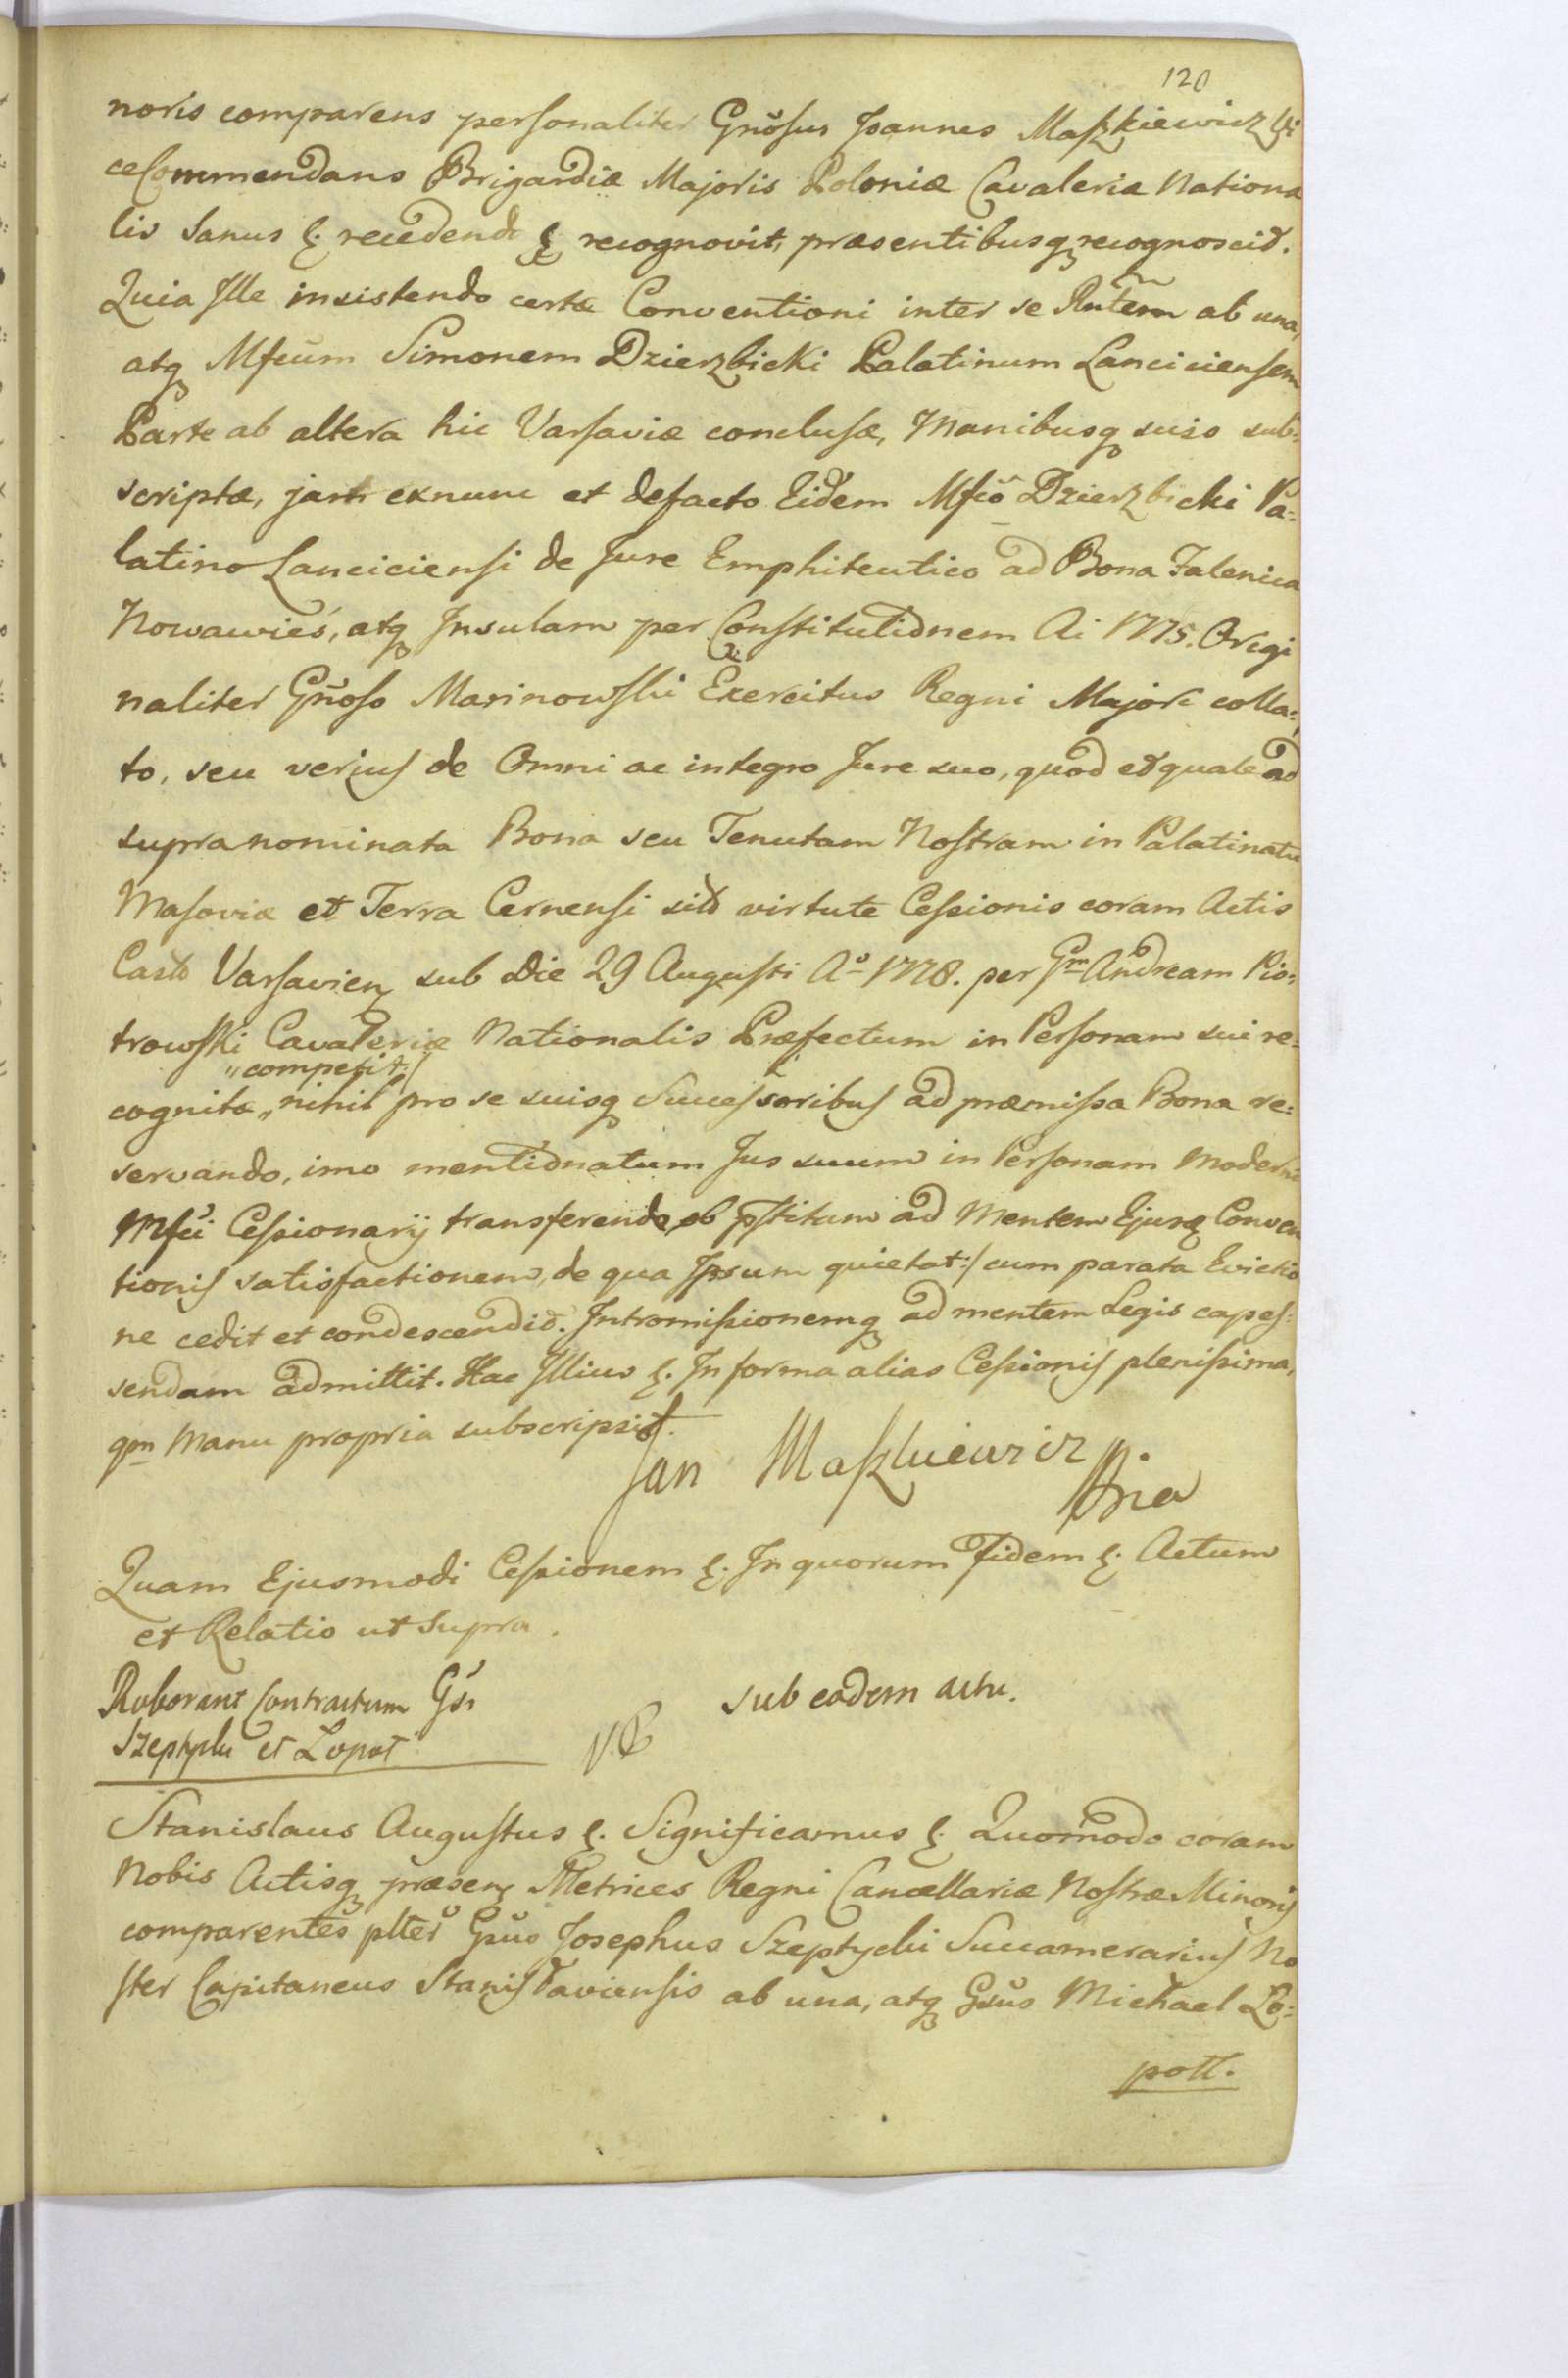 120
noris comparens personaliter Gnosus Joannes Maszkiewicz Vi
ceCommendans Brigardiæ Majoris Poloniæ Cavaleriæ Nationa
lis Sanus &. recedendo &. recognovit, præsentibusq recognoscit.
Quia Ille insistendo certæ Conventioni inter se Rntem ab una,
atq Mfcum Simonem Dzierzbicki Palatinum Lanciciensem
Parte ab altera hic Varsaviæ conclusæ, Manibusq suis sub=
scriptæ, jam exnunc et defacto Eidem Mfco Dzierzbicki Pa=
latino Lanciciensi de Jure Emphiteutico ad Bona Falenica
Nowawieś, atq Insulam per Constitutionem Ai 1775. Origi
naliter Gnoso Marinowski Exercitus Regni Majori colla=
to, seu verius de Omni ac integro Jure suo, quod et quale ad
supranominata Bona seu Tenutam Nostram in Palatinatu
Masoviæ et Terra Cernensi sit virtute Cessionis coram Actis
Cast Varsavien sub Die 29 Augusti Ao 1778. per Gm Andream Pio=
trowski Cavaleriæ Nationalis Præfectum in Personam sui re=
"competit:/
cognitæ " nihil pro se suisq Successoribus ad præmissa Bona re=
servando, imo mentionatum Jus suum in Personam Moderni
Mfci Cessionarij transferendo, ob pstitam ad Mentem Ejusq Conven
tionis satisfactionem, de qua Ipsum quietat:/ cum parata Evictio
ne cedit et condescendit. Intromissionemq ad mentem Legis capes=
sendam admittit. Hac Illius &. In forma alias Cessionis plenissima,
qm Manu propria subscripsit.
Jan Maszkiewicz
Quam Ejusmodi Cessionem &. In quorum Fidem &. Actum
et Relatio ut Supra.
Roborant Contractum Gsi
Szeptycki et Lopot
sub eadem actu.
Stanislaus Augustus &. Significamus &. Quomodo coram
Nobis Actisq præsen Metrices Regni Cancellariæ Nostræ Minoris
comparentes plter Gsus Josephus Szeptycki Succamerarius No
ster Capitaneus Stanislaviensis ab una, atq Gsus Michael Lo=
pott.